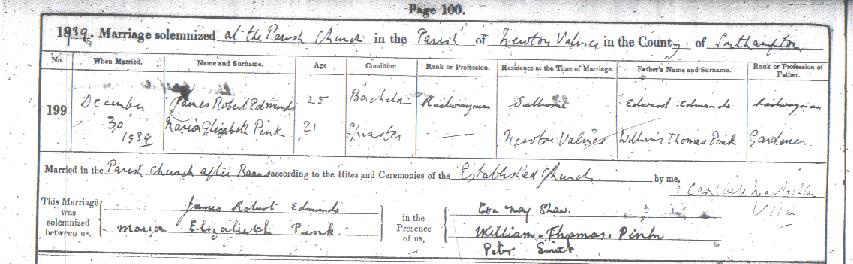 Page 100.
1939. Marriage solemnized at the Parish Church in the Parish of Newton Valence in the County of Southampton
No. When Married. Name and Surname. Age Condition Rank or Profession. Residence at the Time of Marriage. Father's Name and Surname. Rank or Profession of Father.
199 December 30 1939 James Robert Edmunds 25 Bachelor Railwayman Edward Edmunds Railwayman
Maria Elizabeth Pink 21 Spinster — Newton Valence William Thomas Pink Gardener
Married in the Parish Church after Banns according to the Rites and Ceremonies of the Established Church by me,
This Marriage was solemnized between us, James Robert Edmunds in the Presence of us, Eva May Shaw.
Maria Elizabeth Pink. William Thomas Pink
Peter Smith